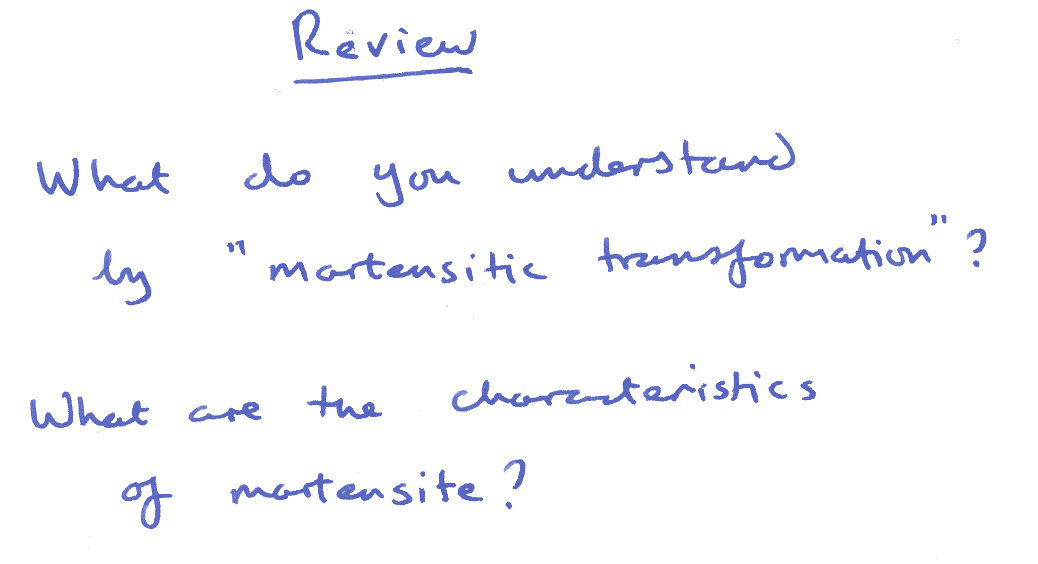 Review
What do you understand
by "martensitic transformation"?
What are the characteristics
of martensite?